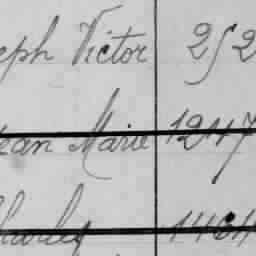 eph Victor 252
ean Marie 1247
harles 1484